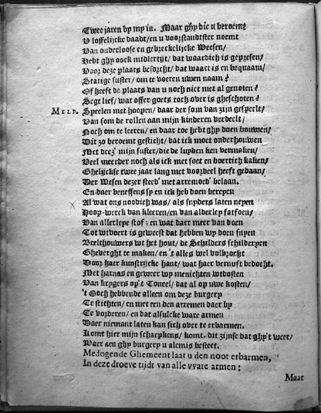 Twee jaren by my in. Maer ghy die u beroemt
U losselijcke daadt/ en u voozstandster noemt
Van ouderloose en gebreckelijcke Weesen/
Hebt ghy oock middelertijt, dat waardich is gepresen/
Voor deze plaats besocht/ dat waart is en bequaam/
Statige suster/ om te voeren uwen naam?
Of heeft de plaats van u noch niet met al genoten?
Segt lief/ wat offer goets toch over is gheschoten?
MELP. Speelen met hoopen/ daar der som van zijn gespeelt/
Van som de rollen aan mijn kinderen verdeelt/
Noch om te leeren/ en daar toe hebt ghy doen bouwen/
Dit zo beroemt gesticht/ dat ick moet onderhouwen
Met dees' mijn suster/ die de luyden ken vermaken/
Veel meerder noch als ick met soet en boertich kaken/
Ghelijckse twee jaar lang met voordeel heeft gedaan/
Der Wesen dezer stede' met aarenoot belaan.
En daer beneffens zy en ick hebben
Al wat ons noodich was/ als snyders laten nepen
Hoop-werck van kleeren/ en van alderley fatsoen/
Van allerleye stof; en wat daer meer van doen
Tot tirvoert is geweest dat hebben wy doen
Beelthouwers wt het hout/ de Schilders schilderpen
Gheberght te maken/ en 't alles wel volvrocht
Door haer kunstrijcke hant/ wat haer vernuft bedocht.
Met harnas en geweer wy menichten wtdosten
Van keysers op 't Toneel/ dat al op uwe kosten/
't Och hebbende alleen om deze burgery
Te stichten/ en met een den aremen daer by
Te vorderen/ en dat alsulcke ware armen
Daer niemant laten kan sich over te erbarmen.
Komt hier mijn schaepkens/ komt, dit zijnse dat ghy't weet/
Waer aen ghy burgery u alemis besteet.
Medogende Ghemeent laat u den noot erbarmen,
In deze droeve tijdt van alle vvare armen:
Maar